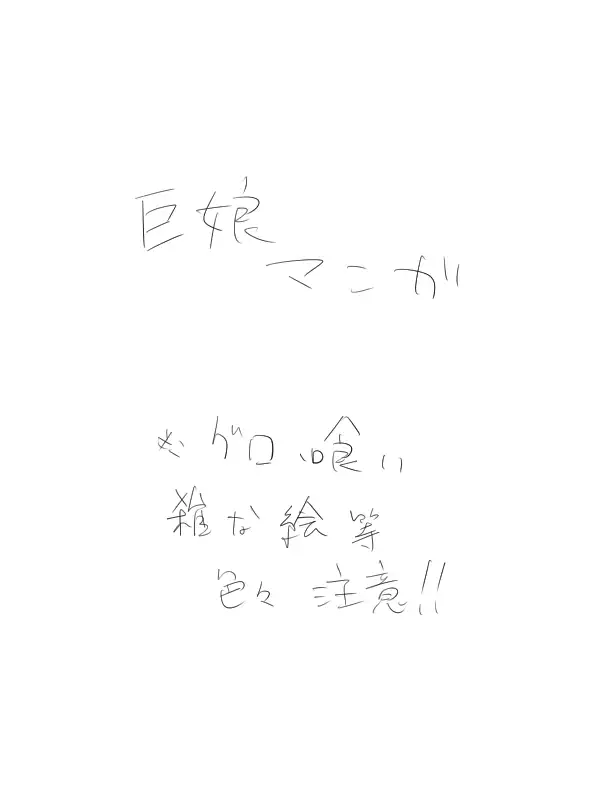 巨娘
マンガ
※グロ、喰い
雑な絵等
色々注意!!